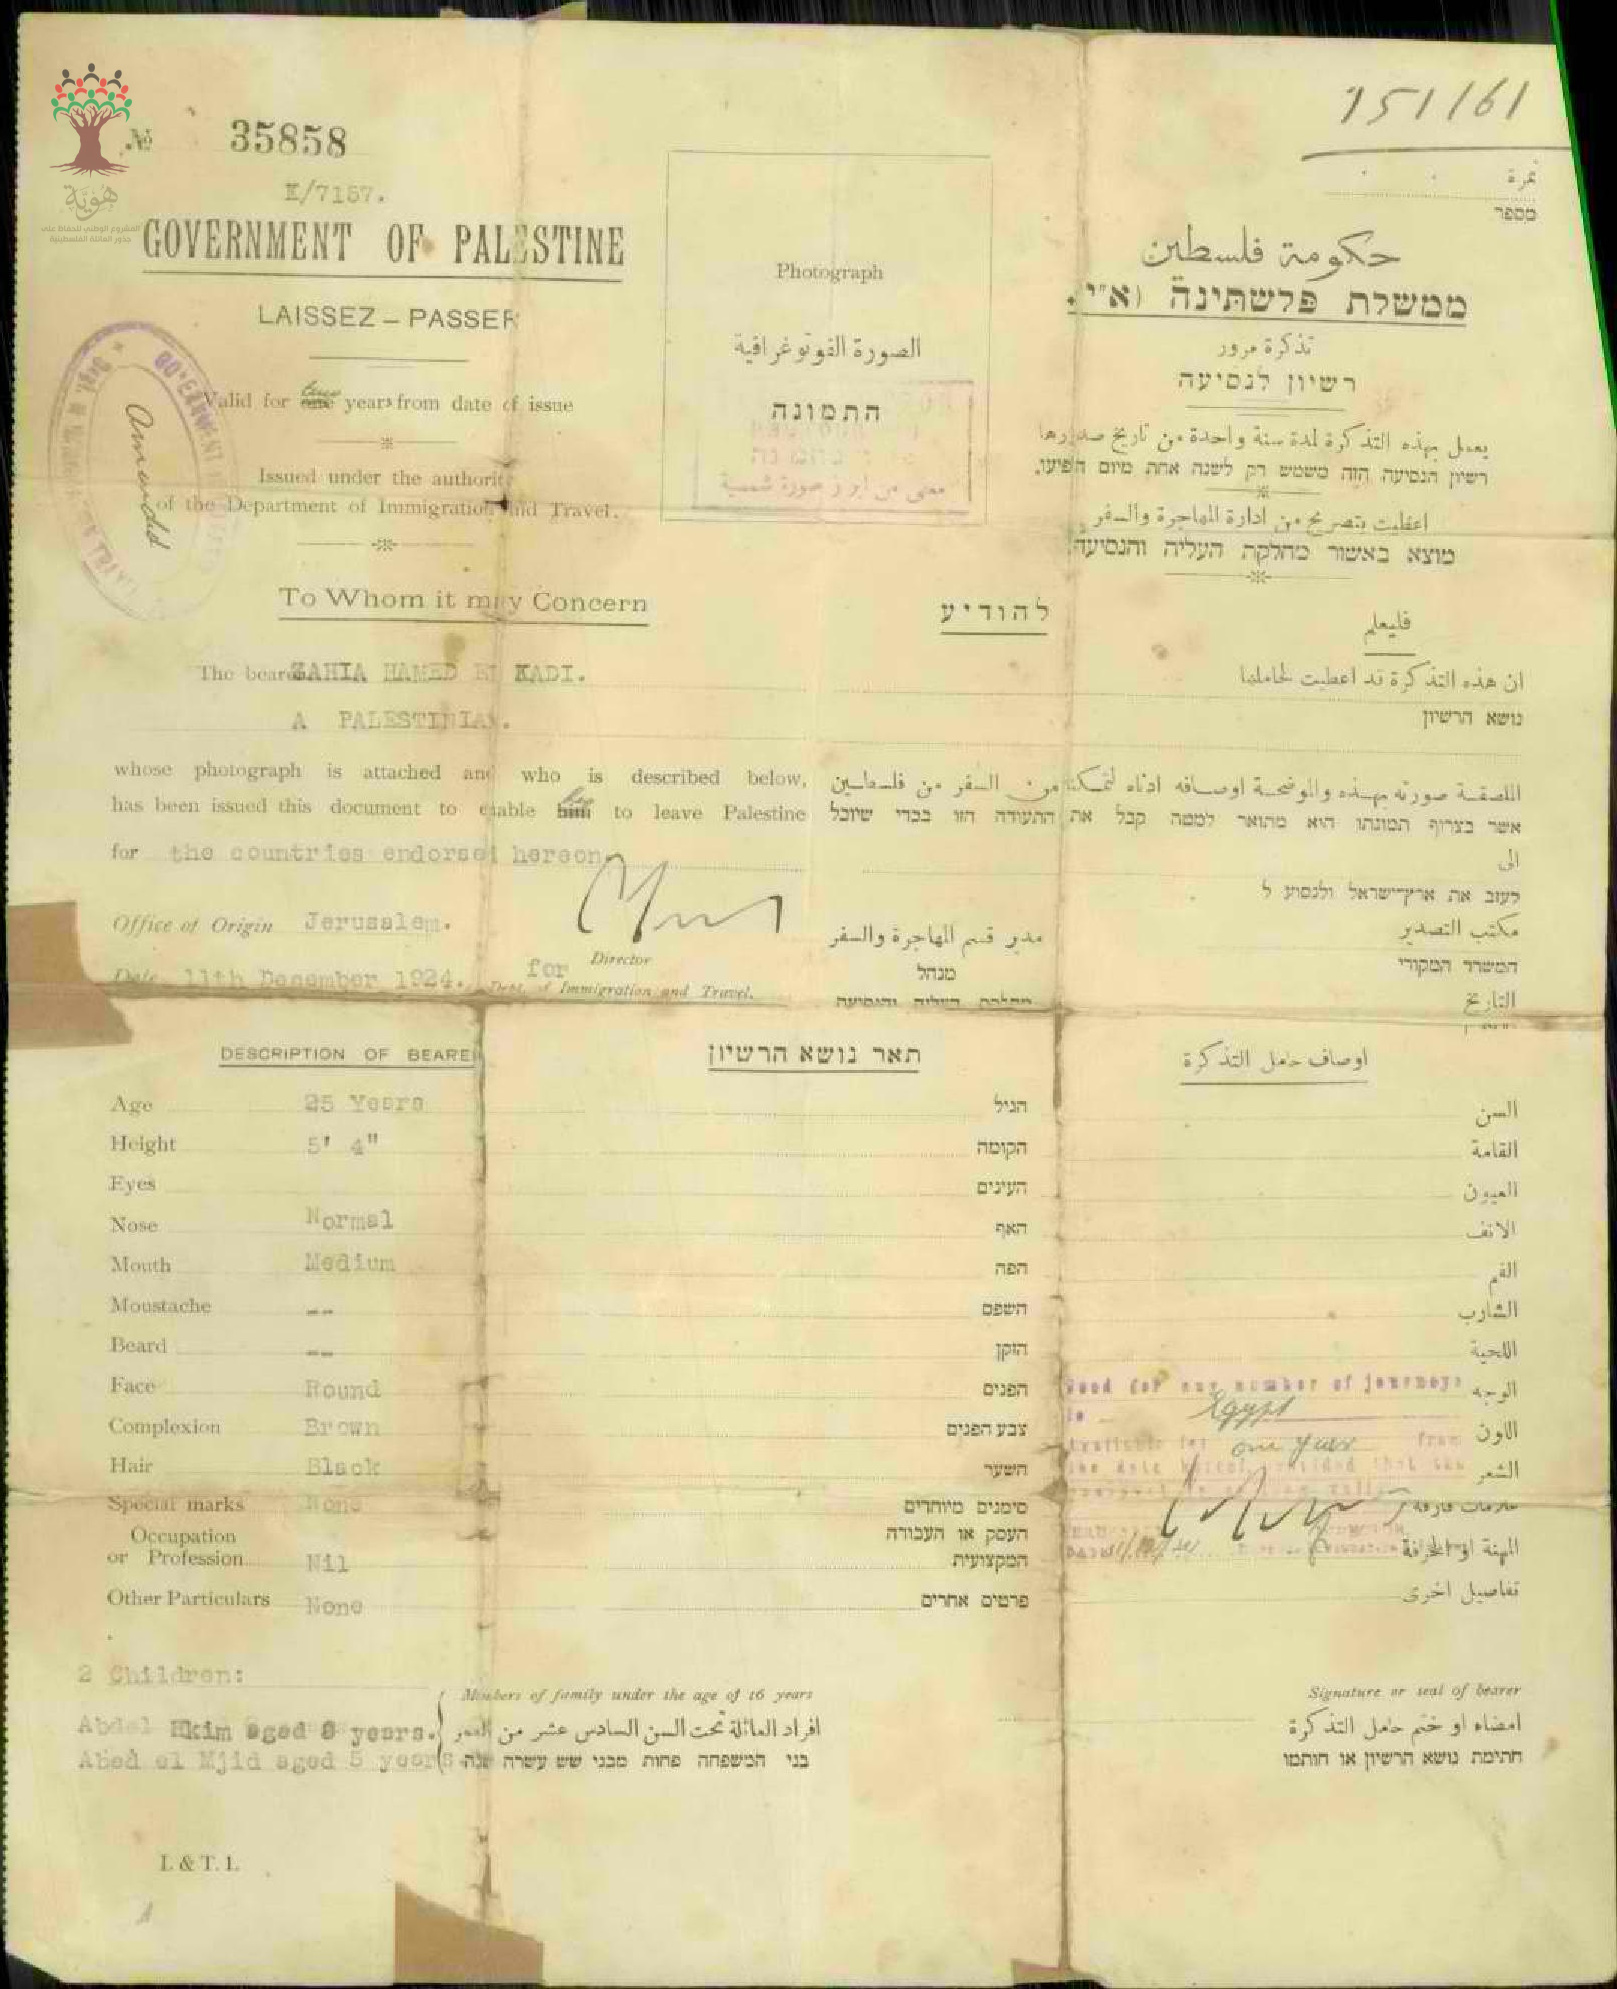 151/61
№ 35858
K/7157.
GOVERNMENT OF PALESTINE
LAISSEZ – PASSER
Valid for one two years from date of issue
Issued under the authority
of the Department of Immigration and Travel.
Amended
هوية
المشروع الوطني للحفاظ على
جذور العائلة الفلسطينية
Photograph
الصورة الفوتوغرافية
התמונה
معفى من ابراز صورة شمسية
نمرة
מספר
حكومة فلسطين
ממשלת פלשתינה (א״י)
تذكرة مرور
רשיון לנסיעה
يعمل بهذه التذكرة لمدة سنة واحدة من تاريخ صدورها
רשיון הנסיעה הזה משמש רק לשנה אחת מיום הפיעו.
اعطيت بتصريح من ادارة المهاجرة والسفر
מוצא באשור מחלקת העליה והנסיעה.
To Whom it may Concern
להודיע
فليعلم
The bearer ZAHIA HAMED EL KADI.
A PALESTINIAN.
ان هذه التذكرة قد اعطيت لحاملها
נושא הרשיון
whose photograph is attached and who is described below,
has been issued this document to enable him her to leave Palestine
for the countries endorsed hereon.
الملصقة صورته بهذه والموضحة اوصافه ادناه لتمكنه من السفر من فلسطين
אשר בצרוף תמונתו הוא מתואר למטה קבל את התעודה הזו בכדי שיוכל
الى
לעזב את ארץ־ישראל ולנסוע ל
Office of Origin Jerusalem.
Date 11th December 1924.
for Director
Dept. of Immigration and Travel.
مدير قسم المهاجرة والسفر
מנהל
מחלקת העליה והנסיעה
مكتب التصدير
המשרד המקורי
التاريخ
DESCRIPTION OF BEARER
תאר נושא הרשיון
اوصاف حامل التذكرة
Age 25 Years הגיל السن
Height 5' 4" הקומה القامة
Eyes העינים العيون
Nose Normal האף الانف
Mouth Medium הפה الفم
Moustache -- השפם الشارب
Beard -- הזקן اللحية
Face Round הפנים الوجه
Complexion Brown צבע הפנים اللون
Hair Black השער الشعر
Special marks None סימנים מיוחדים علامات فارقة
Occupation
or Profession Nil
העסק או העבודה
המקצועית
المهنة او الحرفة
Other Particulars None פרטים אחרים تفاصيل اخرى
Good for any number of journeys
to Egypt
Available for one year from
the date hereof provided that the
2 Children:
Abdel Hkim aged 8 years.
Abed el Mjid aged 5 years
Members of family under the age of 16 years
افراد العائلة تحت السن السادس عشر من العمر
בני המשפחה פחות מבני שש עשרה שנה
Signature or seal of bearer
امضاء او ختم حامل التذكرة
חתימת נושא הרשיון או חותמו
I. & T. 1.